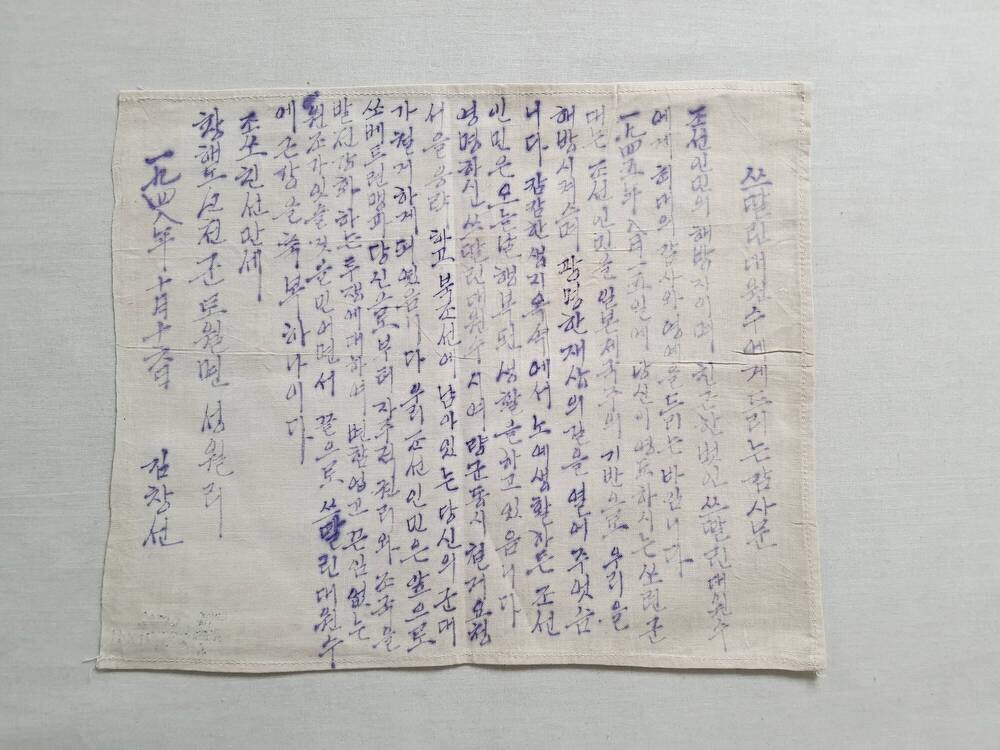 쓰딸린대원수에게드리는감사문
조선인민의해방자이며 친근한벗인 쓰딸린대원수
에게 최대의감사와영예를드리는바입니다
一九四五年八月一五일에 당신이영도하시는쏘련군
대는 조선인민을일본제국주의 기반으로 우리을
해방시켜스며 광명한재생의길을열어주엇슴
니다 캄캄한생지옥속에서 노예생활하든 조선
인민은오는날행부된생활을하고 있음니다
영명하신 쓰딸린대원수시여 량군동시철거요청
서을응락 하고 북조선에 남아있는당신의군대
가철거하게 되였음니다 우리조선인민은앞으로
쏘베트련맹과 당신으로부터 자주적권리와 조국을
발전강화 하는투쟁에대하여 변함없고 끈임없는
원조가잇을것을믿어면서 끝으로 쓰딸린대원수
에 근강을축복하나이다
조쏘친선만세
황해도신천군 도월면 성월리
一九四八年十月十六日 김창선